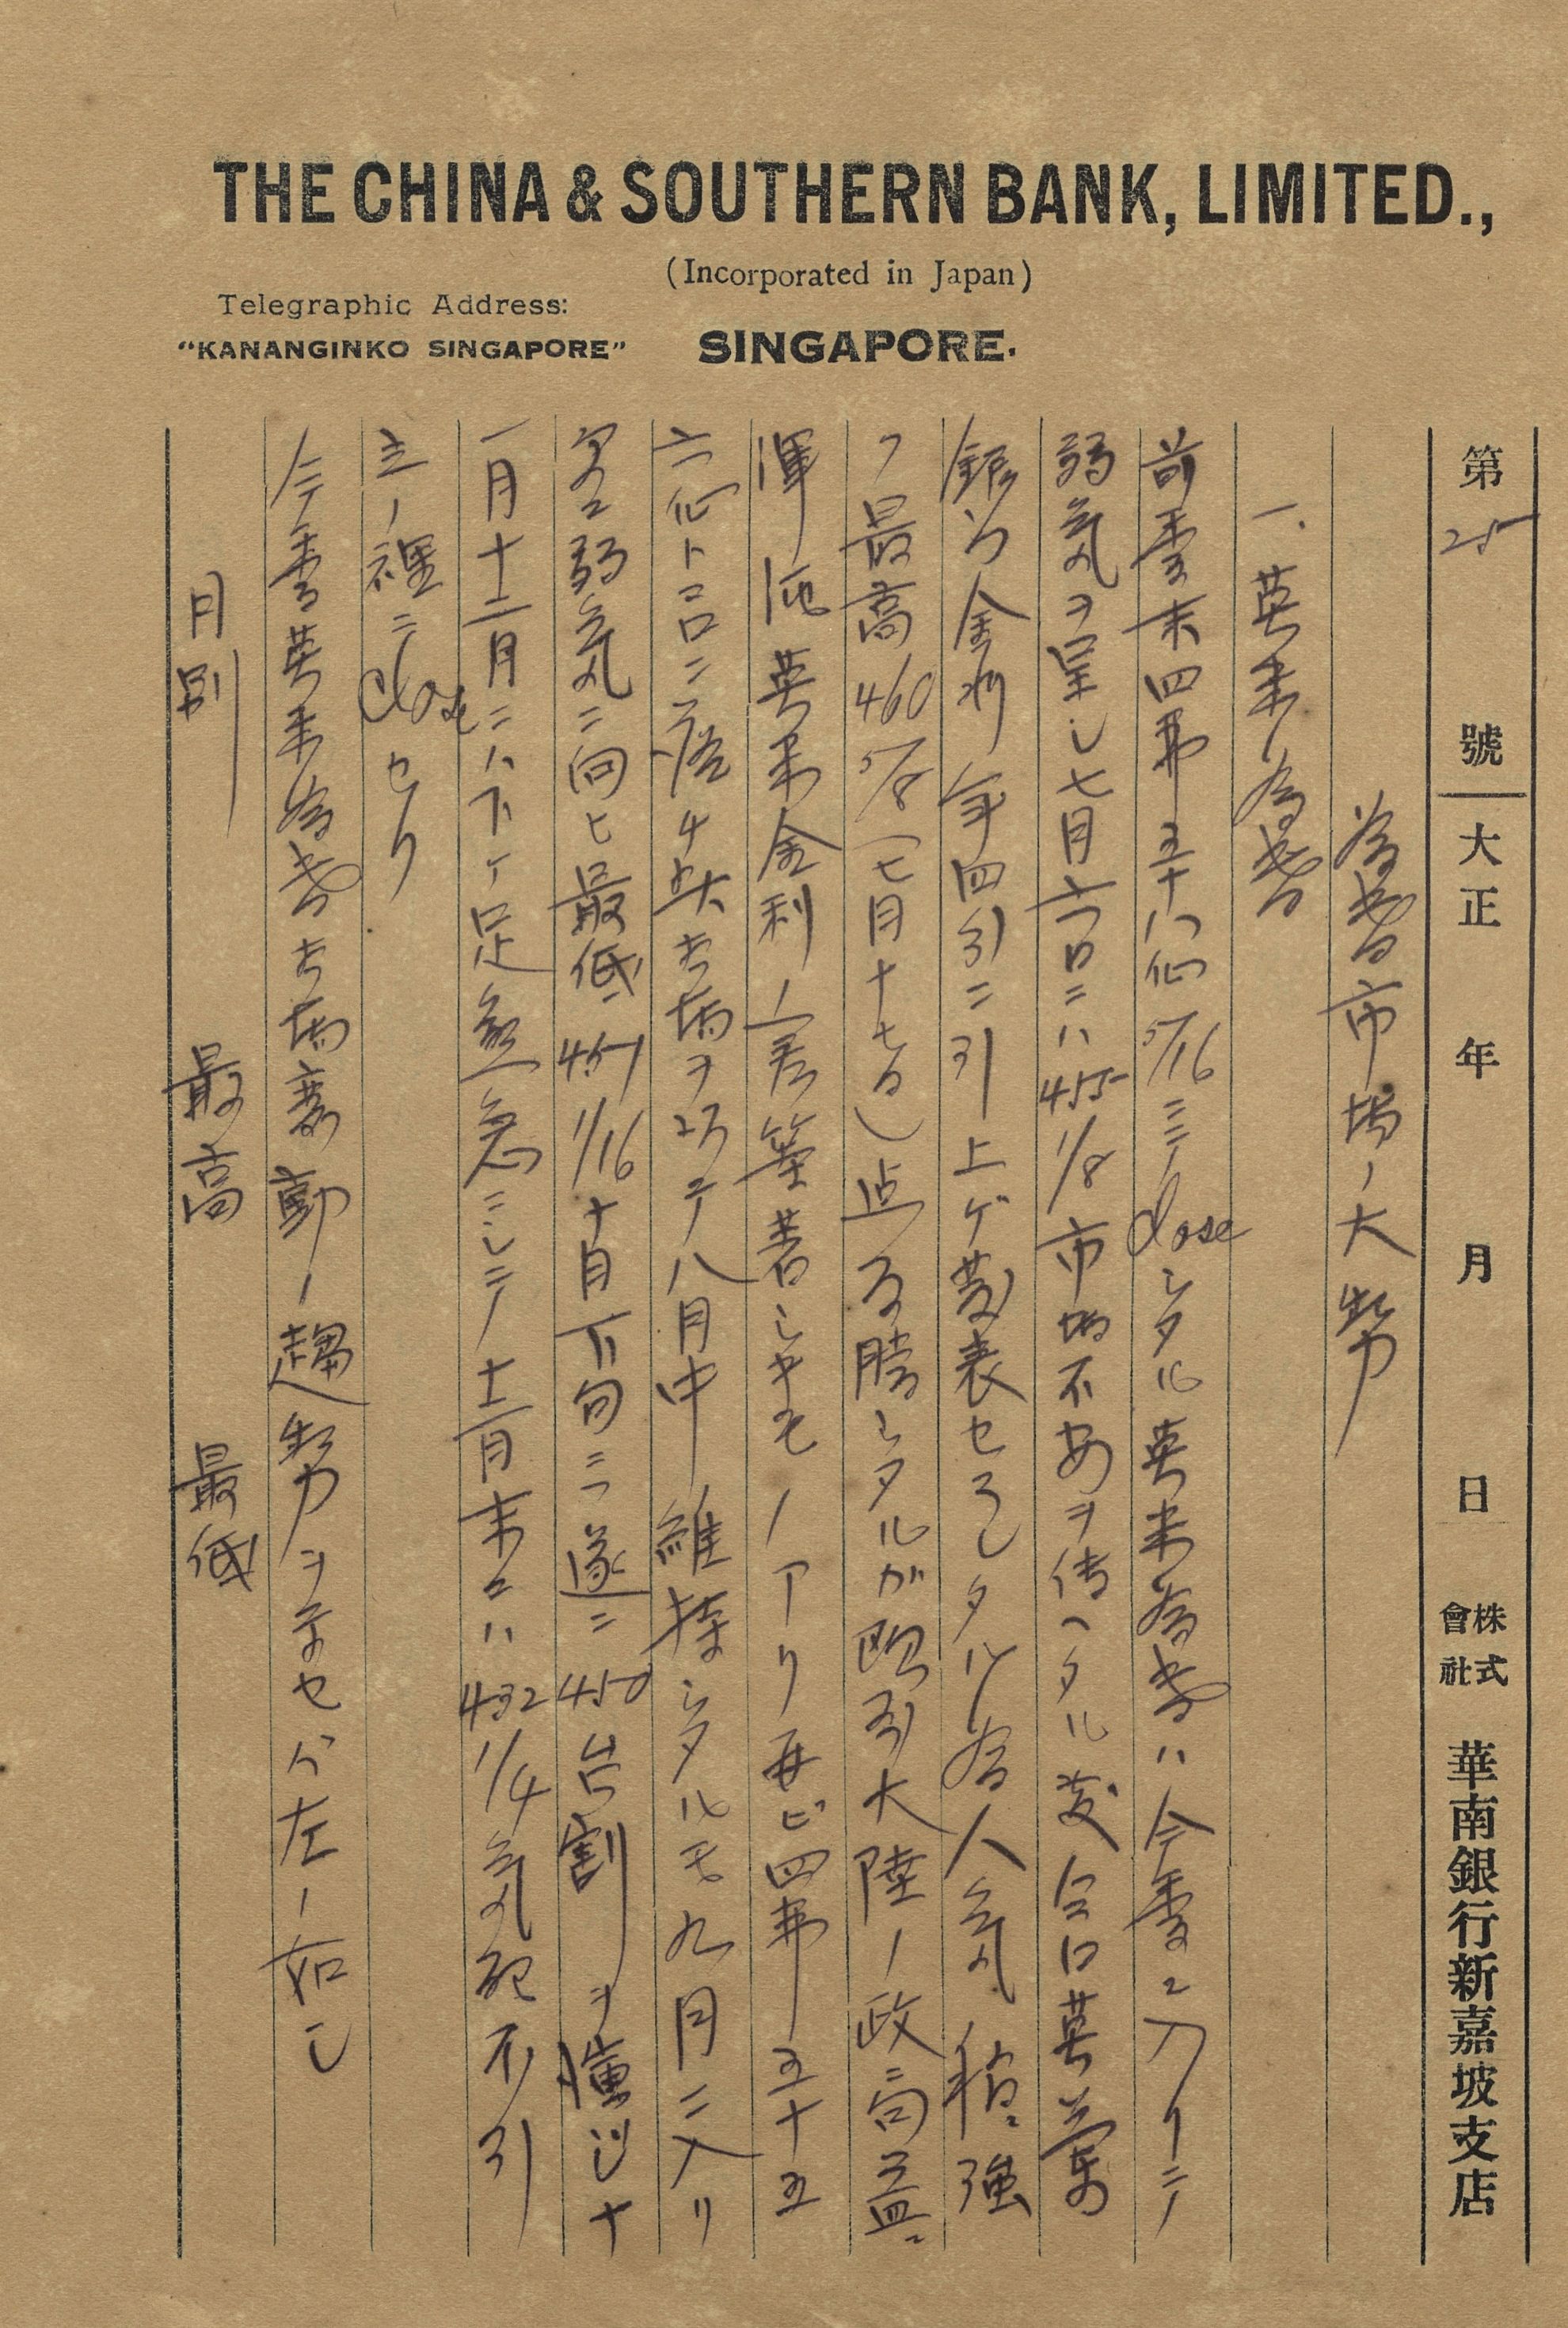 THE CHINA & SOUTHERN BANK, LIMITED.,
(Incorporated in Japan)
Telegraphic Address:
"KANANGINKO SINGAPORE"
SINGAPORE.
第 25 號 大正 年 月 日 株式會社 華南銀行新嘉坡支店
為替市場ノ大勢
一、英米為替
前季末四弗五十八仙5/16ニテcloseシタル英米為替ハ今季ニ入リテ
弱気ヲ呈シ七月六日ニハ455 1/8市場不安ヲ伝ヘタル 英蘭
銀行金利年四引ニ引上ゲ発表セラレタル為人気稍々強
ク最高460 5/8(七月十七日)迄 騰シタルが欧州大陸ノ政局益々
渾沌英米金利ノ差等著シキモノアリ再ビ四弗五十五
六仙ト 相場ヲ 八月中維持シタルモ九月ニ入リ
弱気ニ向ヒ最低451 1/16十月下句ニ遂ニ450台割ヲ演ジ十
一月十二月ニハ下ケ足益急ニシテ十二月末ニハ432 1/4気配不引
立ノ裡ニcloseセリ
今季英米為替相場変動ノ趨勢ヲ示セバ左ノ如シ
月別 最高 最低